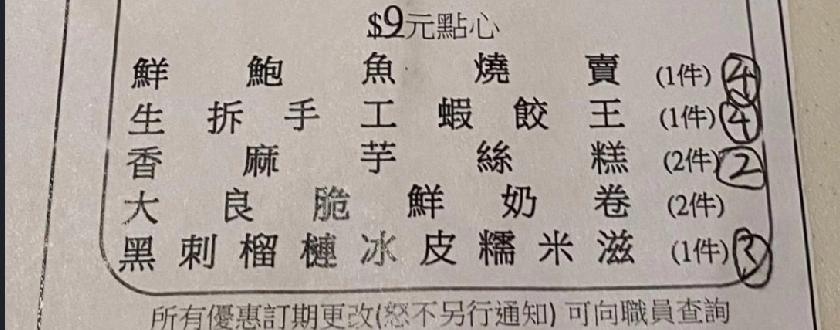 $9元點心
鮮鮑魚燒賣 (1件) 4
生拆手工蝦餃王 (1件) 4
香麻芋絲糕 (2件) 2
大良脆鮮奶卷 (2件)
黑刺榴槤冰皮糯米滋 (1件) 3
所有優惠訂期更改(怒不另行通知) 可向職員查詢